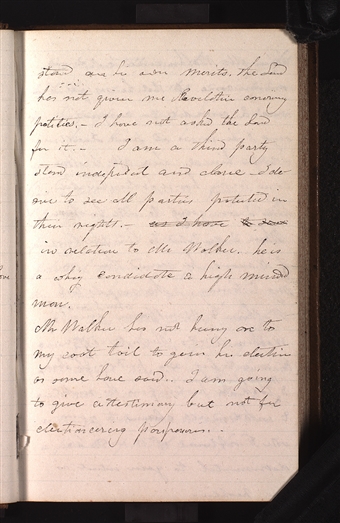 stand on his own merits. The Lord
has not given me Revelation concerning
politics. – I have not asked the Lord
for it. – I am a third party
stand independent and alone – I de-
sire to see all parties protected in
their rights. – as I have
in relation to Mr Walker. he is
a whig candidate a high minded
man.
Mr Walker has not hung on to
my coat tail to gain his election
as some have said. I am going
to give a testimony but not for
electioneering purposes. –